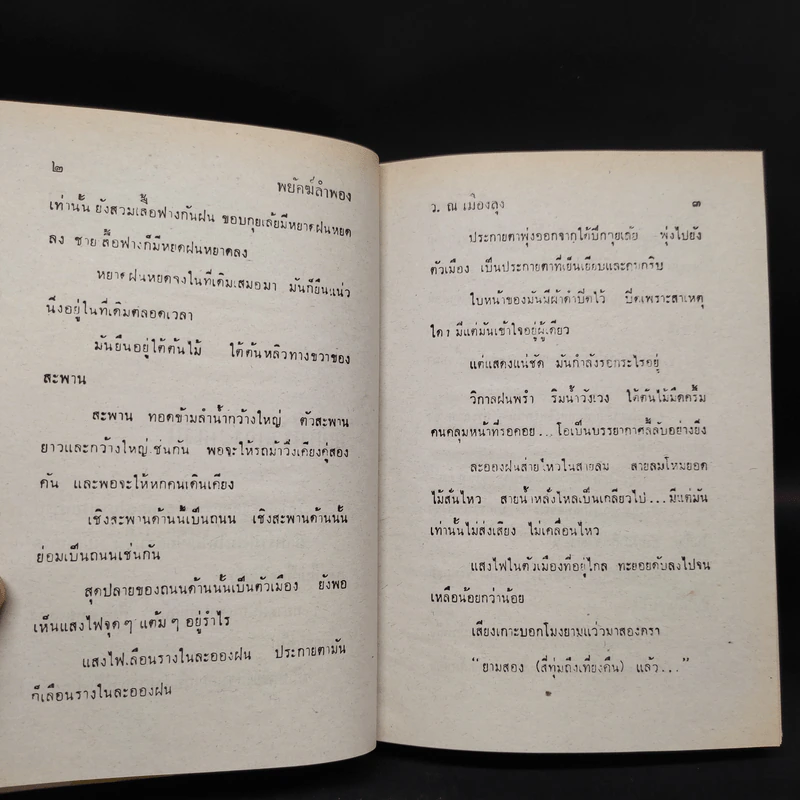 ๒
พยัคฆ์ลำพอง
เท่านั้น ยังสวมเสื้อฟางกันฝน ขอบกุยเล้ยมีหยาดฝนหยด
ลง ชายเสื้อฟางก็มีหยดฝนหยาดลง
หยาดฝนหยดจงในที่เดิมเสมอมา มันก็ยืนแน่ว
นิ่งอยู่ในที่เดิมตลอดเวลา
มันยืนอยู่ใต้ต้นไม้ ใต้ต้นหลิวทางขวาของ
สะพาน
สะพาน ทอดข้ามลำน้ำกว้างใหญ่ ตัวสะพาน
ยาวและกว้างใหญ่เช่นกัน พอจะให้รถม้าวิ่งเคียงคู่สอง
คัน และพอจะให้หกคนเดินเคียง
เชิงสะพานด้านนี้เป็นถนน เชิงสะพานด้านนั้น
ย่อมเป็นถนนเช่นกัน
สุดปลายของถนนด้านนั้นเป็นตัวเมือง ยังพอ
เห็นแสงไฟจุดๆ แต้มๆ อยู่รำไร
แสงไฟเลือนรางในละอองฝน ประกายตามัน
ก็เลือนรางในละอองฝน
ว. ณ เมืองลุง
๓
ประกายตาพุ่งออกจากใต้ปีกกุยเล้ย พุ่งไปยัง
ตัวเมือง เป็นประกายตาที่เย็นเยียบและคมกริบ
ใบหน้าของมันมีผ้าดำปิดไว้ ปิดเพราะสาเหตุ
ใดๆ มีแต่มันเข้าใจอยู่ผู้เดียว
แต่แสดงแน่ชัด มันกำลังรอกระไรอยู่
วิกาลฝนพรำ ริมน้ำวังเวง ใต้ต้นไม้มืดครึ้ม
คนคลุมหน้าที่รอคอย... โอเป็นบรรยากาศลี้ลับอย่างยิ่ง
ละอองฝนส่ายไหวในสายลม สายลมโหมยอด
ไม้สั่นไหว สายน้ำหลั่งไหลเป็นเกลียวไป... มีแต่มัน
เท่านั้นไม่ส่งเสียง ไม่เคลื่อนไหว
แสงไฟในตัวเมืองที่อยู่ไกล ทะยอยดับลงไปจน
เหลือน้อยกว่าน้อย
เสียงเกาะบอกโมงยามแว่วมาสองครา
"ยามสอง (สี่ทุ่มถึงเที่ยงคืน) แล้ว..."